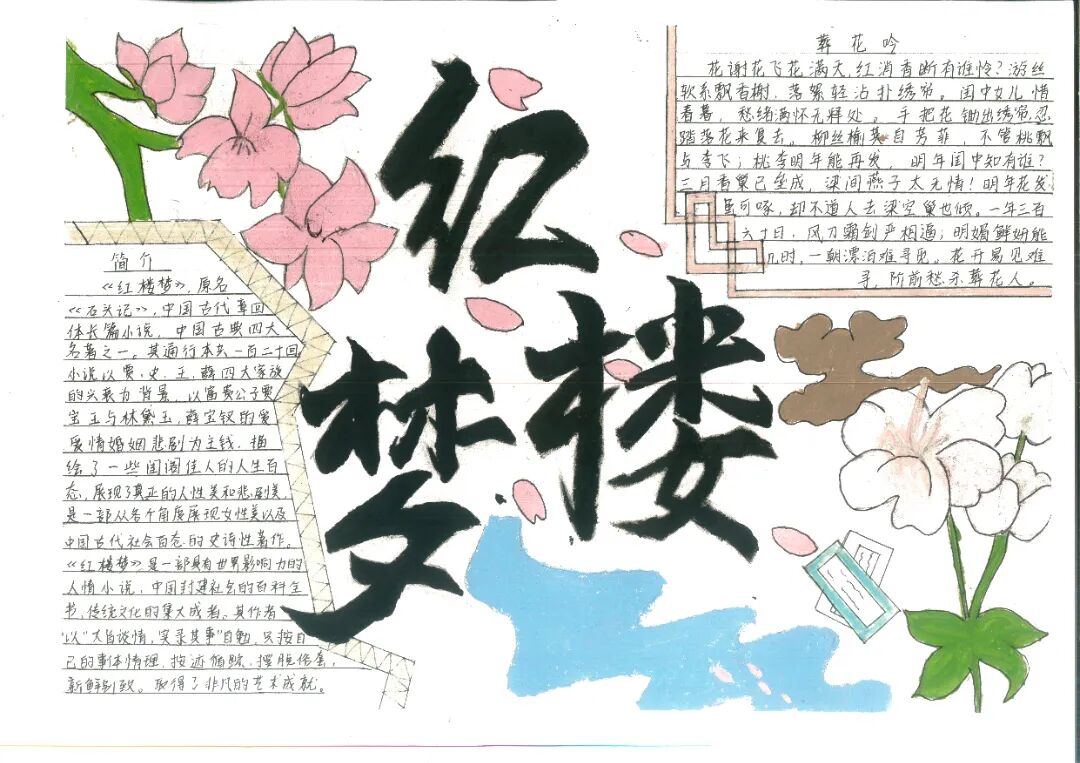 红楼梦
葬花吟
花谢花飞花满天,红消香断有谁怜?游丝
软系飘香榭,落絮轻沾扑绣帘。闺中女儿惜
春暮,愁绪满怀无释处。手把花锄出绣帘,忍
踏落花来复去。柳丝榆荚自芳菲,不管桃飘
与李飞;桃李明年能再发,明年闺中知有谁?
三月香巢已垒成,梁间燕子太无情!明年花发
虽可啄,却不道人去梁空巢也倾。一年三百
六十日,风刀霜剑严相逼;明媚鲜妍能
几时,一朝漂泊难寻觅。花开易见难
寻,阶前愁杀葬花人。
简介
《红楼梦》,原名
《石头记》,中国古代章回
体长篇小说,中国古典四大
名著之一。其通行本共一百二十回
小说以贾、史、王、薛四大家族
的兴衰为背景,以富贵公子贾
宝玉与林黛玉,薛宝钗的爱
情婚姻悲剧为主线,描
绘了一些闺阁佳人的人生百
态,展现了真正的人性美和悲剧美,
是一部从各个角度展现女性美以及
中国古代社会百态的史诗性著作。
《红楼梦》是一部具有世界影响力的
人情小说,中国封建社会的百科全
书,传统文化的集大成者。其作者
以“大旨谈情,实录其事”自勉,只按自
己的事体情理,按迹循踪,摆脱俗套,
新鲜别致。取得了非凡的艺术成就。